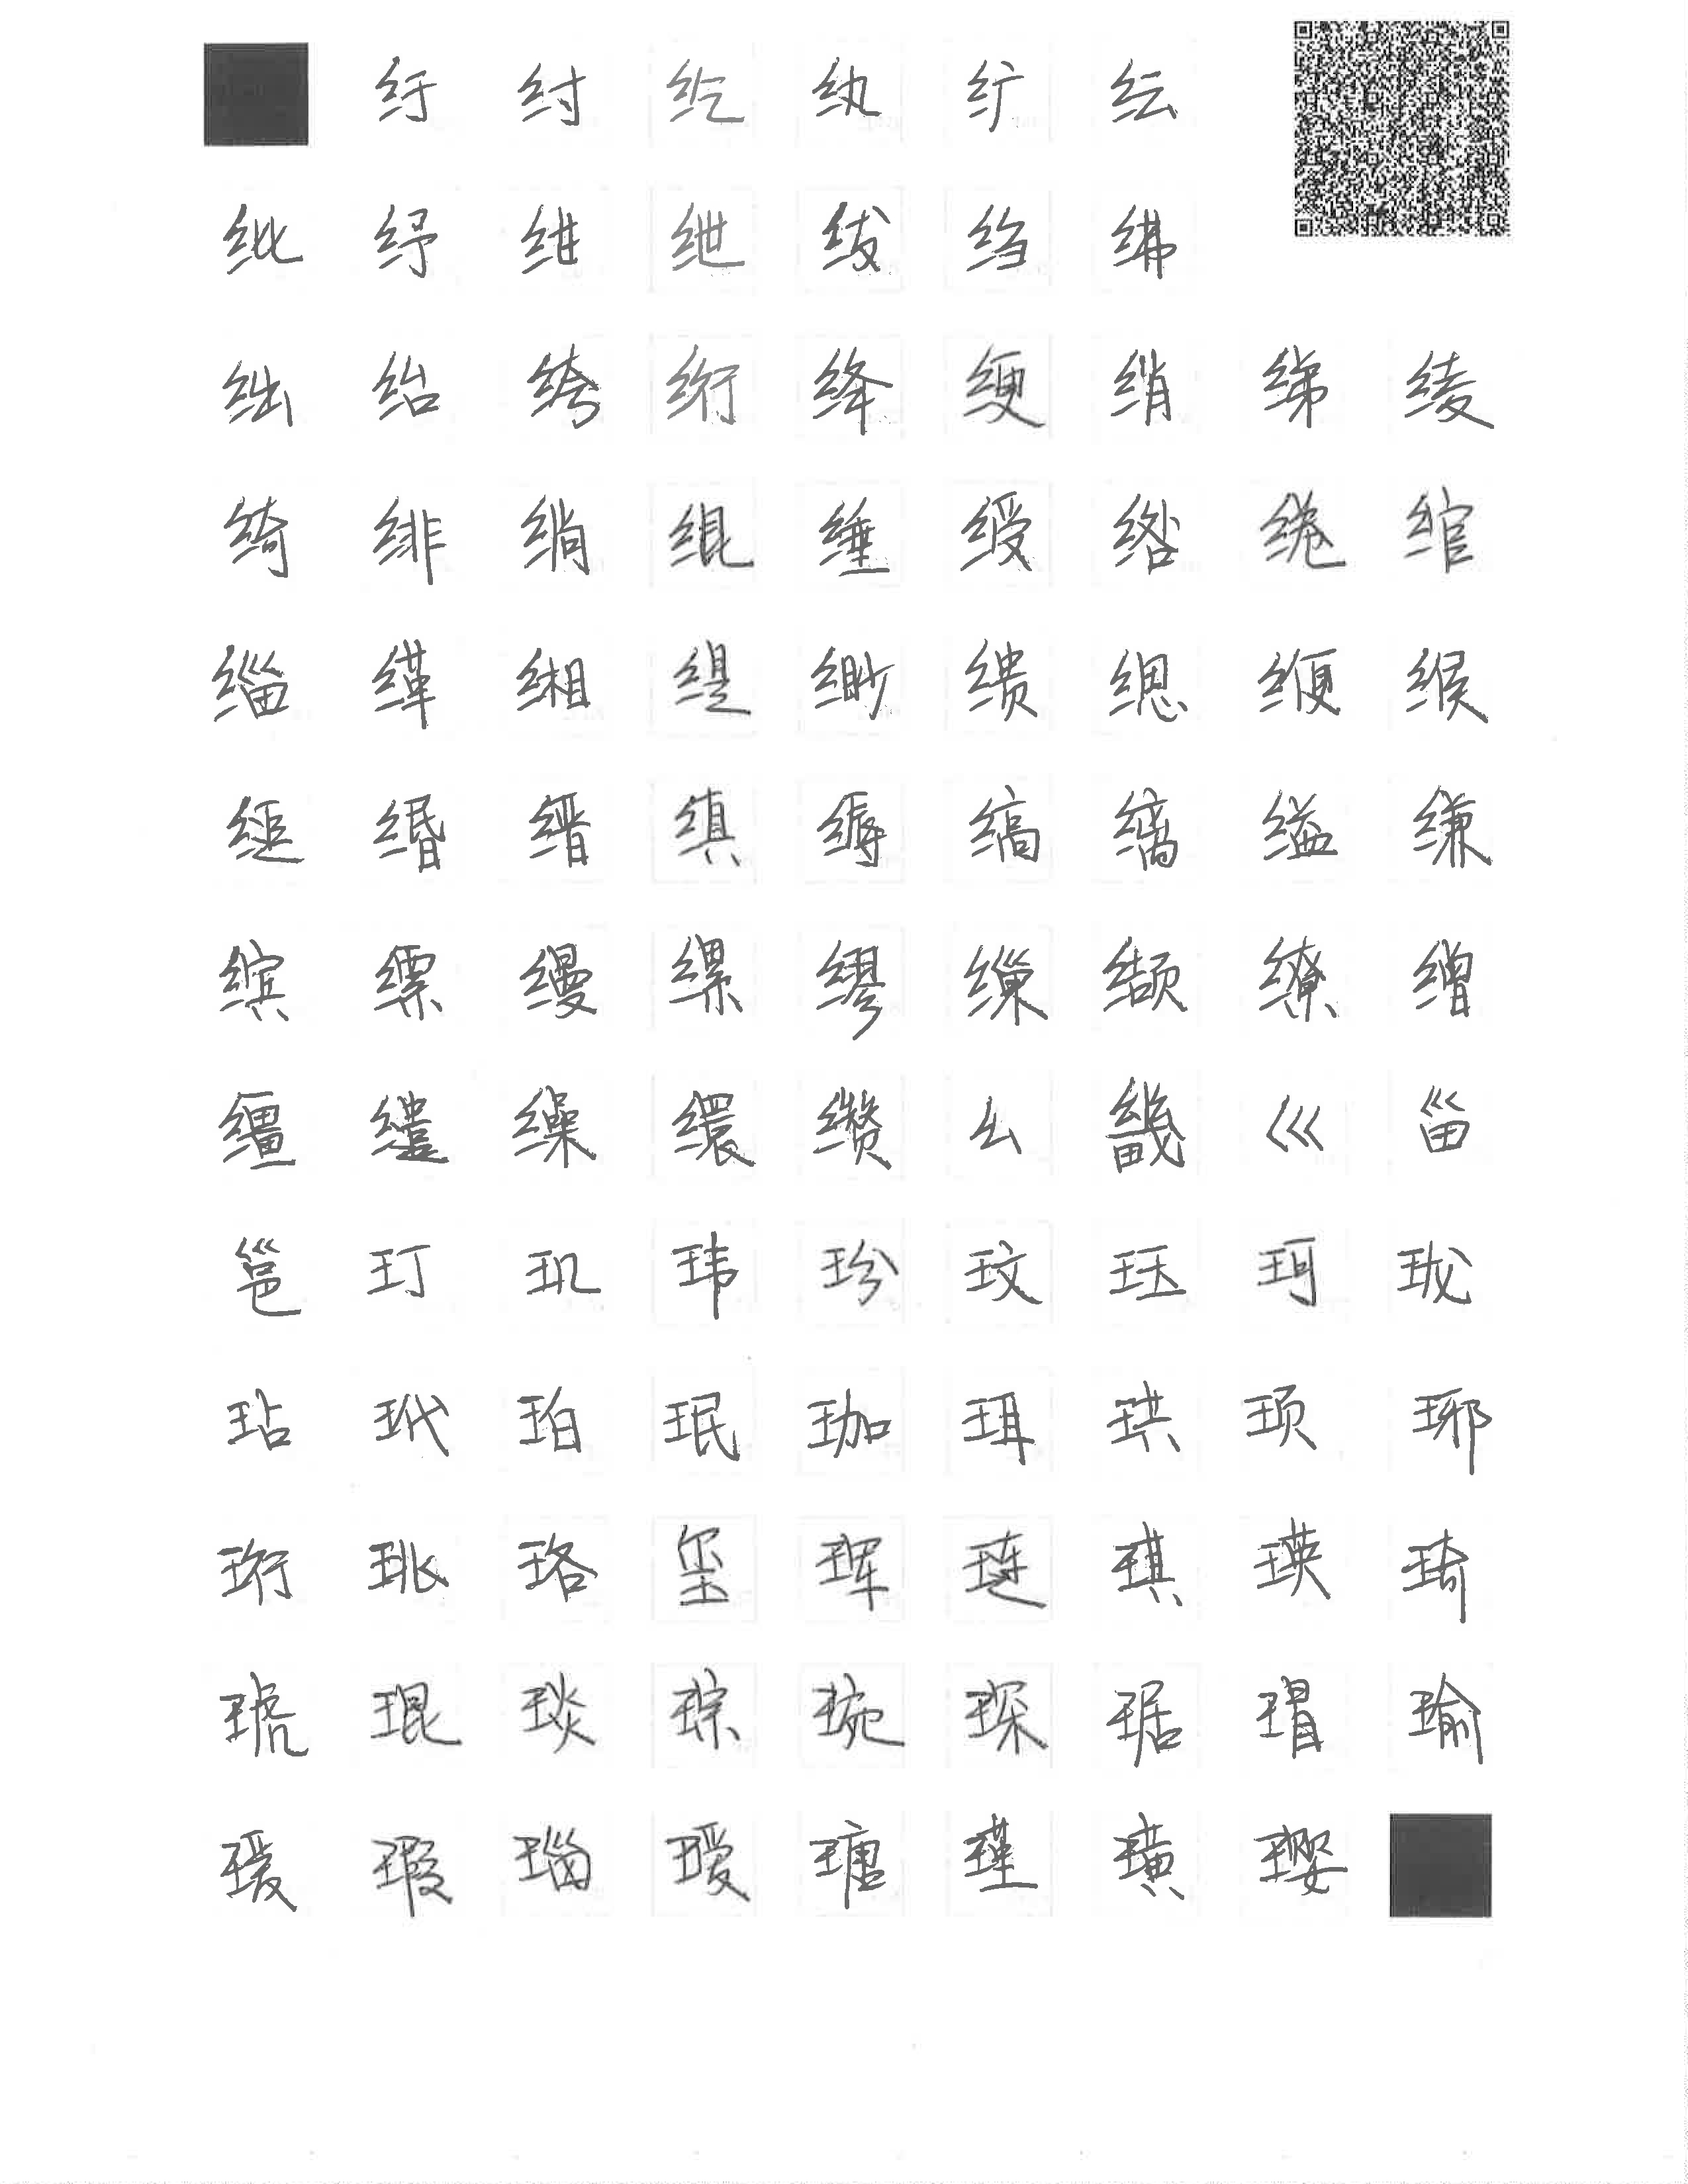 纡 纣 纥 纨 纩 纭
纰 纾 绀 绁 绂 绉 绋
绌 绐 绔 绗 绛 绠 绡 绨 绫
绮 绯 绱 绲 缍 绶 绺 绻 绾
缁 缂 缃 缇 缈 缋 缌 缏 缑
缒 缗 缙 缜 缛 缟 缡 缢 缣
缤 缥 缦 缧 缪 缫 缬 缭 缯
缰 缱 缲 缳 缵 幺 畿 巛 甾
邕 玎 玑 玮 玢 玟 珏 珂 珑
玷 玳 珀 珉 珈 珥 珙 顼 琊
珩 珧 珞 玺 珲 琏 琪 瑛 琦
琥 琨 琰 琮 琬 琛 琚 瑁 瑜
瑗 瑕 瑙 瑷 瑭 瑾 璜 璎